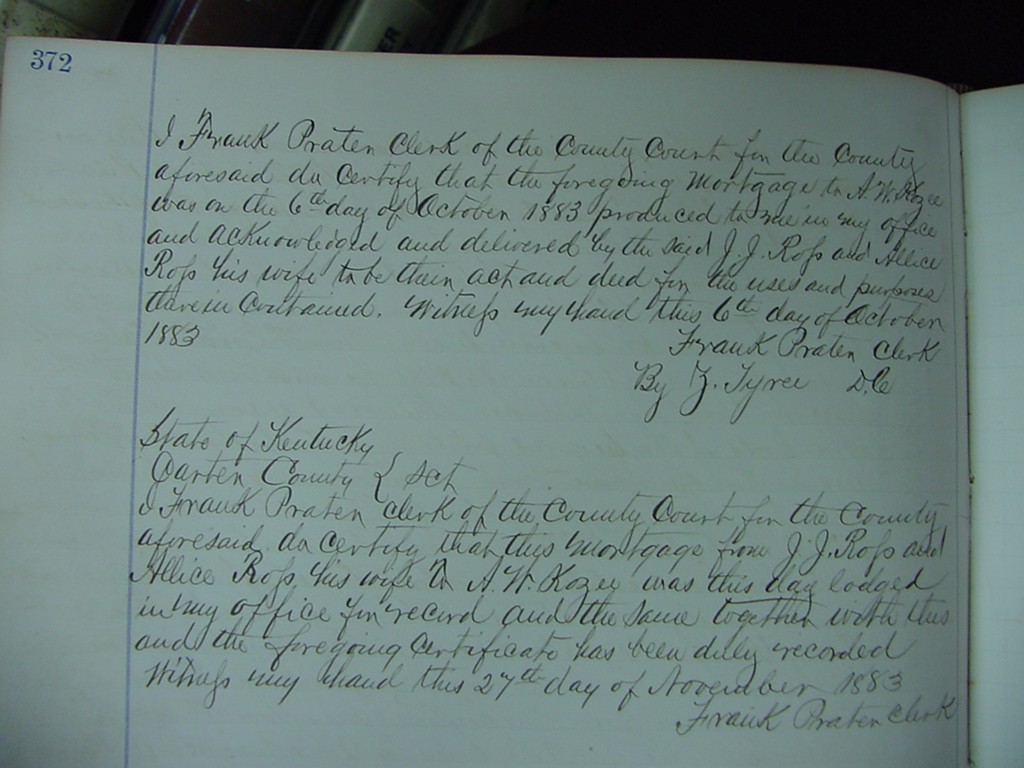 372
I Frank Praten Clerk of the County Court for the County
aforesaid do Certify that the foregoing Mortgage to A. W. Kozee
was on the 6th day of October 1883 produced to me in my office
and acknowledged and delivered by the said J. J. Ross and Allice
Ross his wife to be their act and deed for the uses and purposes
therein Contained. Witness my hand this 6th day of October
1883
Frank Praten Clerk
By Z. Tyree D.C
State of Kentucky
Carter County { Sct
I Frank Praten clerk of the County Court for the County
aforesaid do certify that this mortgage from J. J. Ross and
Allice Ross his wife to A. W. Kozee was this day lodged
in my office for record and the same together with this
and the foregoing Certificate has been duly recorded
Witness my hand this 27th day of November 1883
Frank Praten Clerk